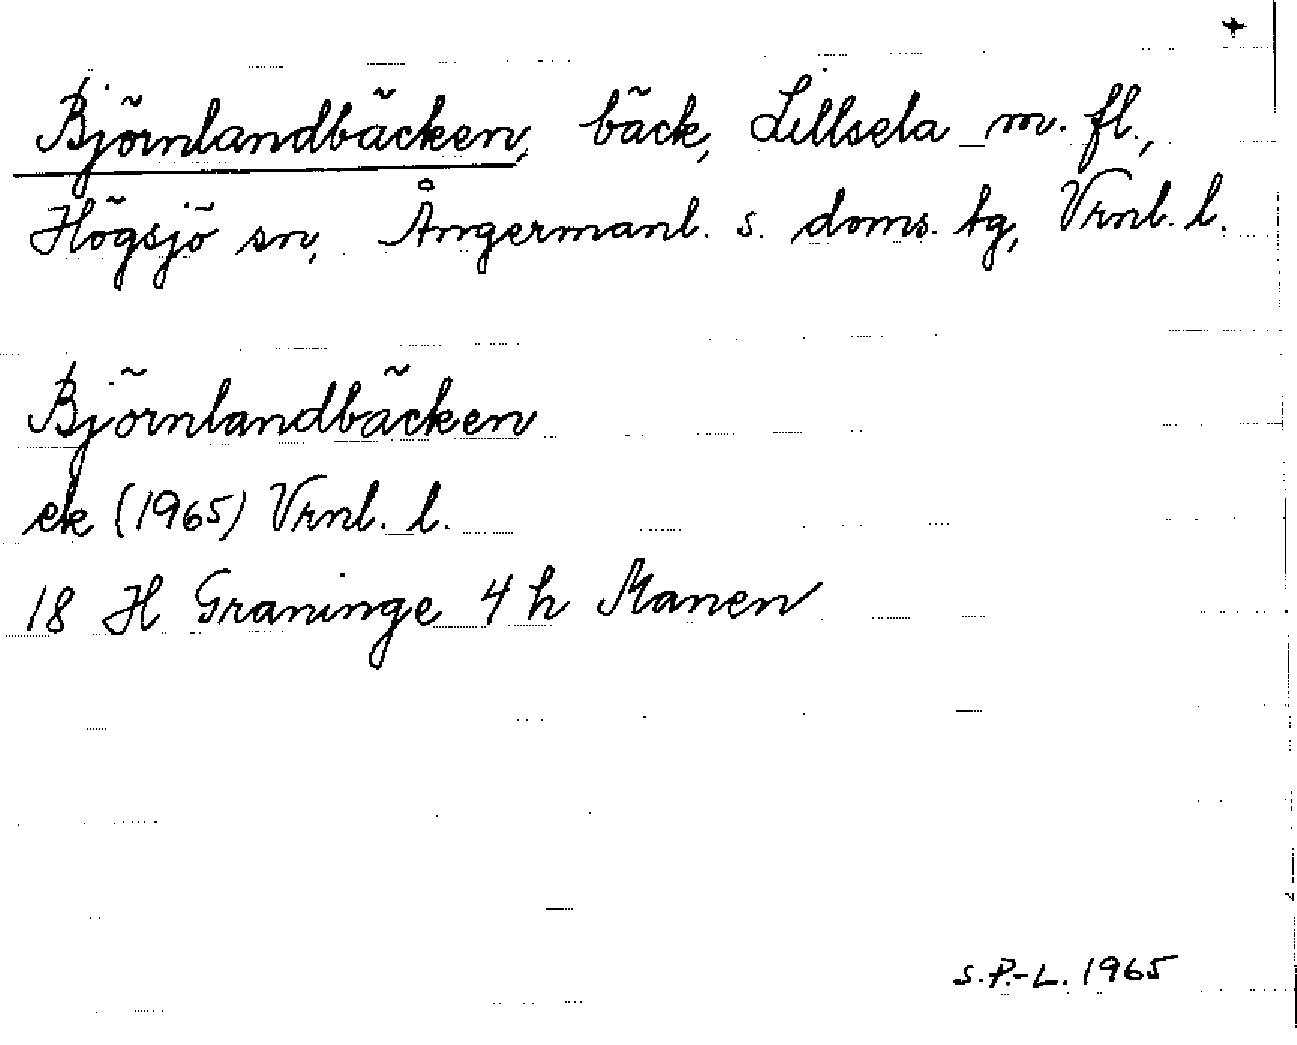 +
Björnlandbäcken, bäck, Lillsela m. fl.,
Högsjö sn, Ångermanl. s. doms. tg, Vrnl. l.
Björnlandbäcken
ek (1965) Vrnl. l.
18 H Graninge 4 h Manen
S.P.-L. 1965